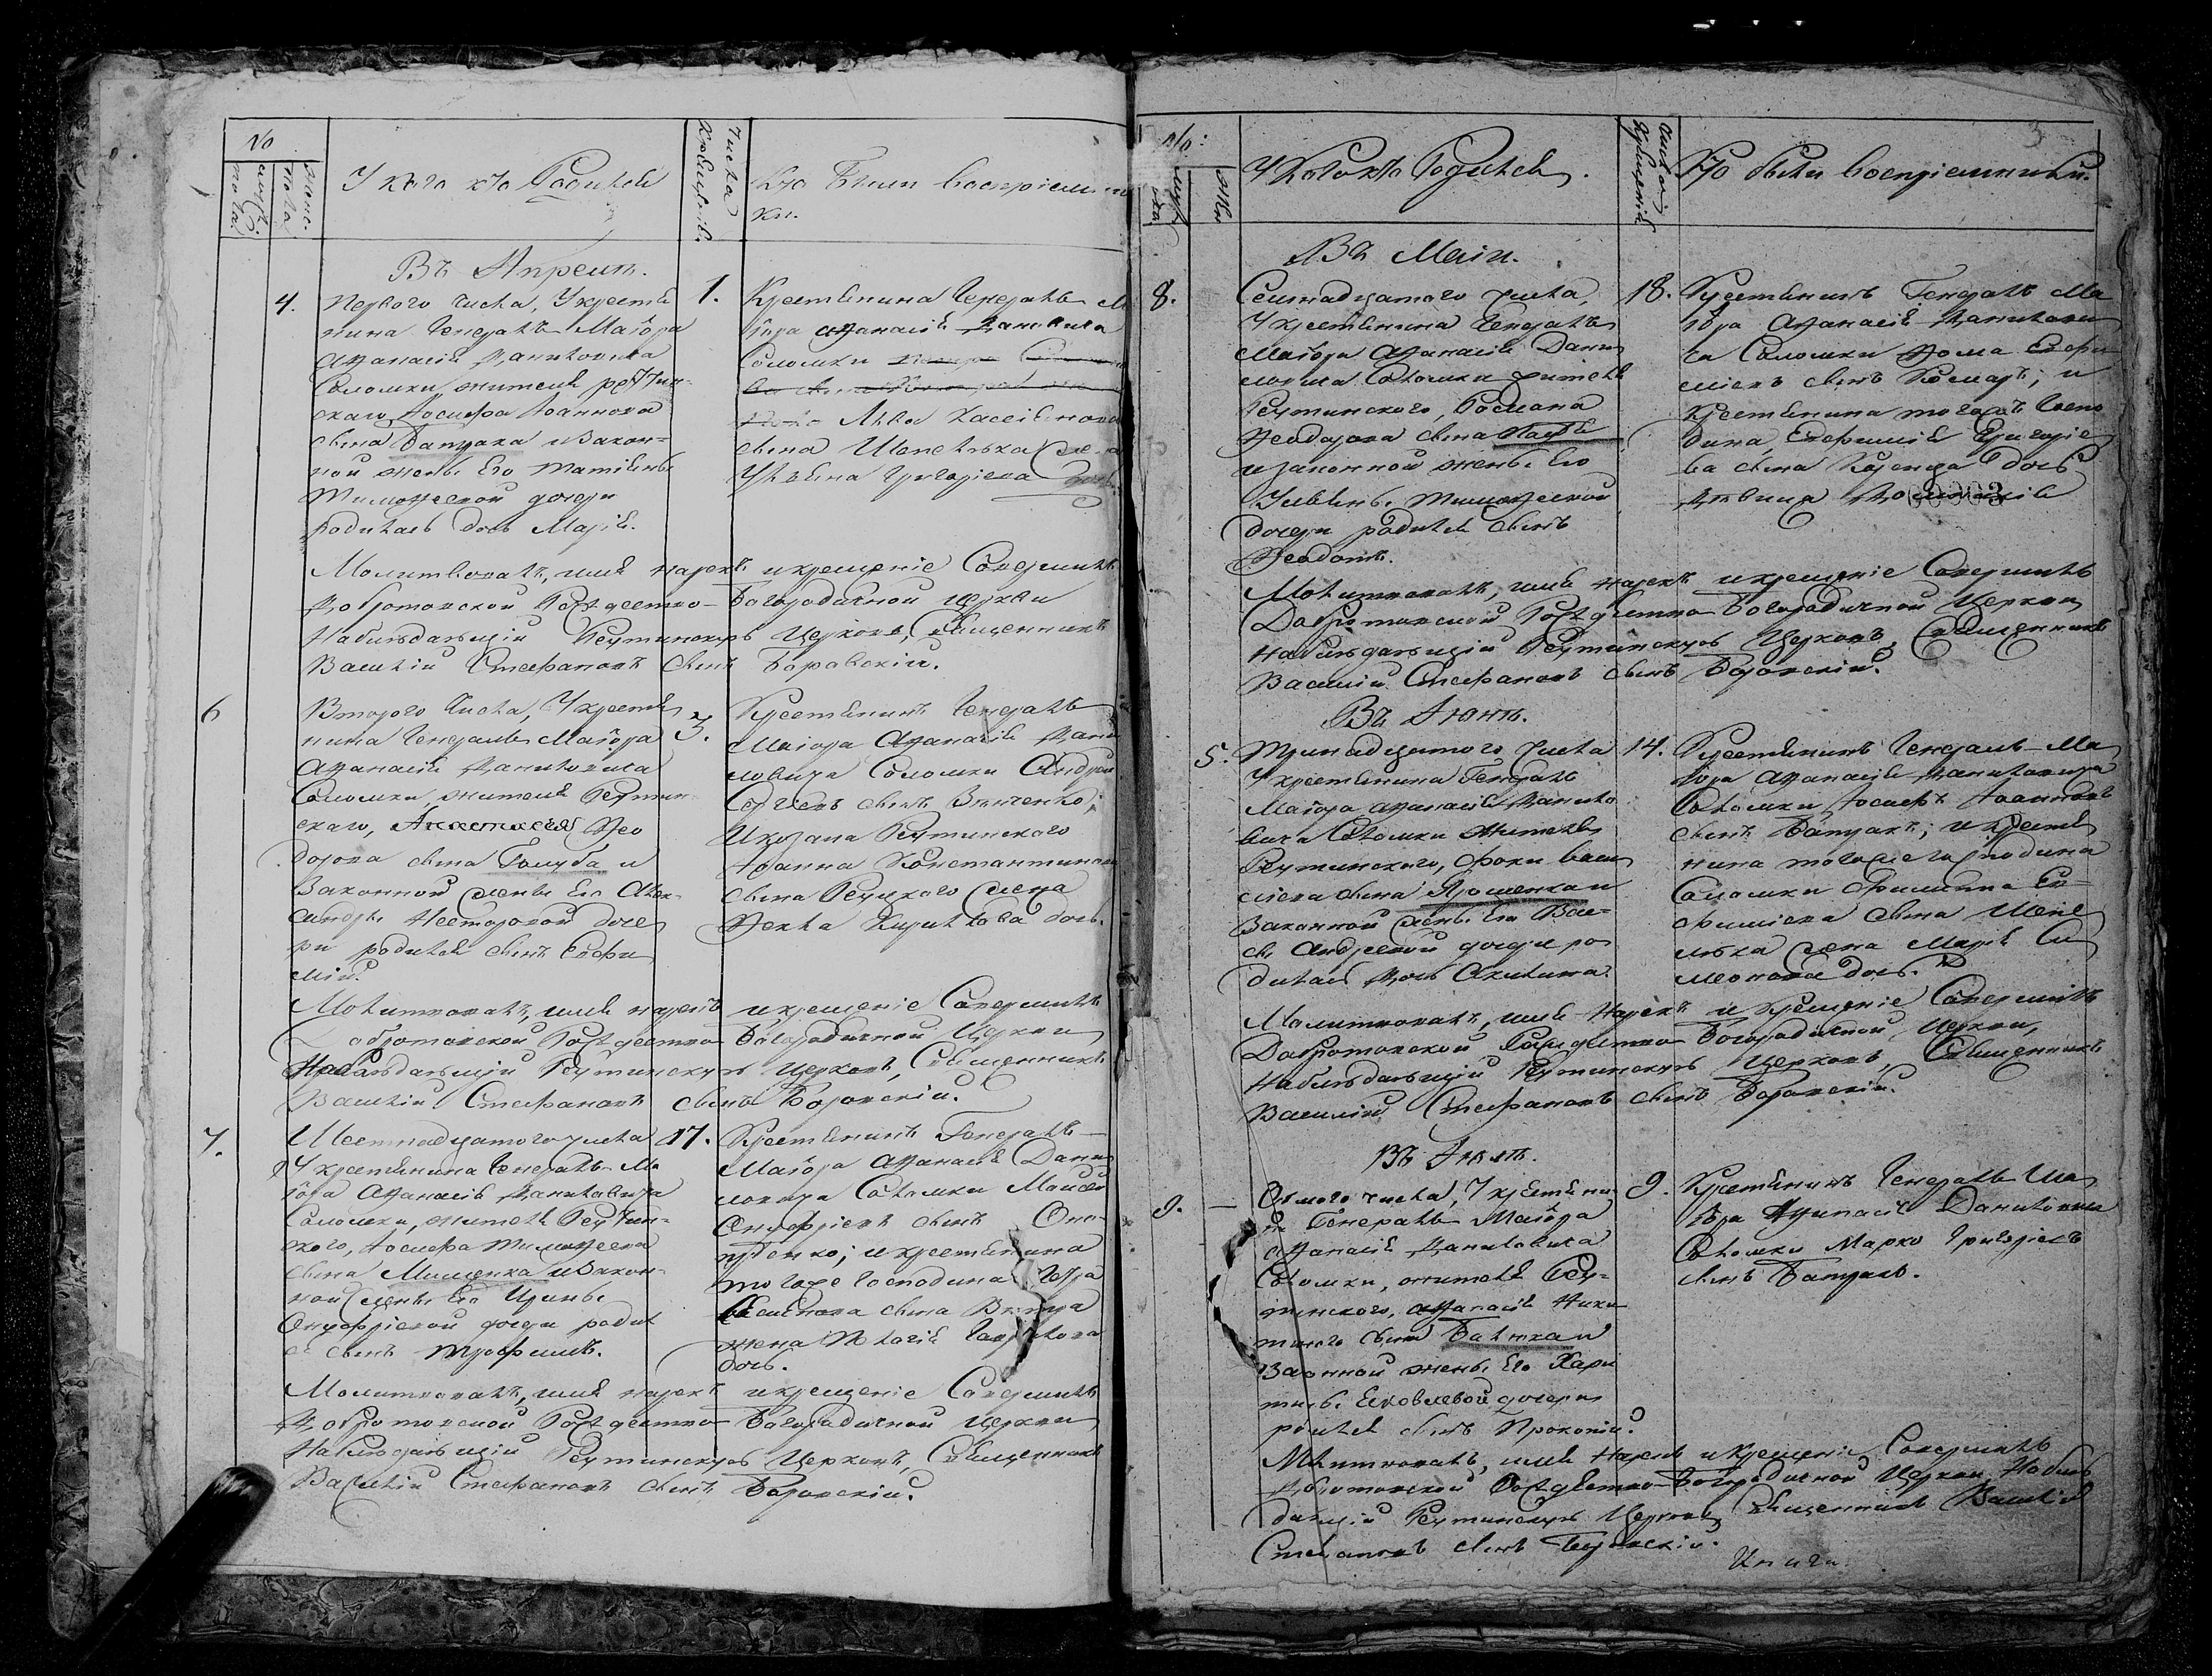 №
муж. пола
женс. пола
У кого кто Родился
Числа Крещенія.
Кто Были восприемни
ки.
Въ Апрелѣ.
4.
Первого числа, У крестья
нина Генералъ Маіора
Афанасія Даниловича
Соломки жителя реутин-
скаго Іосифа Іоаннова
сына Батрака и Закон-
ной жены Его
Тимофеевой дочери
родилась дочь Марія.
1.
Крестьянина Генералъ М
аіора Афанасія Даниловича
Соломки
Лва Касіянова
сына Шепелька жена
Ульяна Григоріева дочь.
Молитвовалъ, имя нарекъ и крещеніе Совершилъ
Добротовской Рождество-Богородичной церкви
Наблюдающій Реутинскую Церковь, Священникъ
Василій Стефановъ сынъ Боровскій.
6
Второго Числа, У крестья
нина Генералъ Маіора
Афанасія Даниловича
Соломки, жителя Реутин
скаго, Анастасія Фео
дорова сына Голуба и
Законной жены Его Алек-
сандры Несторовой доче
ри родился сынъ Ефи
мій.
3.
Крестьянинъ Генералъ
Маіора Афанасія Дани
ловича Соломки Андрей
Сергѣевъ сынъ Вятченко;
Реутинского
Іоанна Константинова
сына Реуцкого жена
Фекла Кирилова дочь.
Молитвовалъ, имя нарекъ и крещеніе Совершилъ
Добротовской Рождество Богородичной Церкви
Наблюдающій Реутинскую Церковь, Священникъ
Василій Стефановъ сынъ Боровскій.
7.
Шестнадцатого числа
У крестьянина Генералъ Ма
іора Афанасія Даниловича
Соломки, жителя Реутин-
ского, Іосифа Тимофеева
сына Мищенка и Закон-
ной жены Его Ирины
Онуфріевой дочери родил
ся сынъ Трофимъ.
17.
Крестьянинъ Генералъ
Маіора Афанасія Дани
ловича Соломки Моисей
Онуфріевъ сынъ Оно-
и крестьянина
того же Господина Петра
сына
жена Пелагія Гаврилова
дочь.
Молитвовалъ, имя нарекъ и крещеніе Совершилъ
Добротовской Рождество Богородичной Церкви
Наблюдающій Реутинскую Церковь, Священникъ
Василій Стефановъ сынъ Боровскій.
3
№:
У Кого кто Родился.
Числа Крещенія
Кто были восприемники.
Въ Маіи.
8.
Семнадцатого числа,
У крестьянина Генералъ
Маіора Афанасія Дани
ловича Соломки жителя
Реутинского, Романа
Феодорова сына Голуба
и законной жены Его
Ульяны Тимофеевой
дочери родился сынъ
Феодотъ.
18.
Крестьянинъ Генералъ Ма
іора Афанасія Данилови
ча Соломки Фома Ефи
міевъ сынъ и
Крестьянина того жъ Госпо
дина, Ефимія Григоріе
ва сына дочь
дѣвица
00003
Молитвовалъ, имя нарекъ и крещеніе Совершилъ
Добротовской Рождество Богородичной Церкви
Наблюдающій Реутинскую Церковь, Священникъ
Василій Стефановъ сынъ Боровскій.
Въ Іюнѣ.
5.
Тринадцатого числа
У крестьянина Генералъ
Маіора Афанасія Данило
вича Соломки Жителя
Реутинского, Фоки Васи
ліева сына Ярошенка и
Законной жены Его Вас-
сы Андреевой дочери ро
дилась дочь Акилина.
14.
Крестьянинъ Генералъ-Ма
іора Афанасія Даниловича
Соломки Іосифъ Іоанновъ
сынъ Батракъ; и Крестья
нина того же Господина
Соломки Филиппа Ев-
фиміева сына Шепе
лька жена Марія Си
меонова дочь.
Молитвовалъ, имя Нарекъ и Крещеніе Совершилъ
Добротовской Рождество Богородичной Церкви,
Наблюдающій Реутинскую Церковь, Священникъ
Василій Стефановъ сынъ Боровскій.
Въ Іюлѣ.
9.
Осмого числа, У крестьяни
на Генералъ Маіора
Афанасія Даниловича
Соломки, жителя Реу-
тинского, Афанасія Ники
тиного сына и
Законной жены Его Хари
тины Ековлевой дочери
родился сынъ Прокопій.
9.
Крестьянинъ Генералъ Ма
іора Афанасія Даниловича
Соломки Марко Григоріевъ
сынъ Батракъ.
Молитвовалъ, имя Нарекъ и Крещеніе Совершилъ
Добротовской Рождество-Богородичной Церкви Наблю
дающій Реутинскую Церковь Священникъ Василій
Стефановъ сынъ Боровскій.